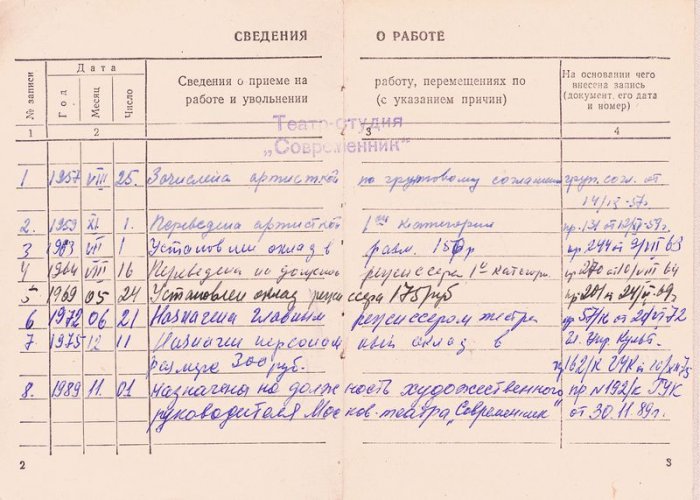 СВЕДЕНИЯ О РАБОТЕ
№ записи
Дата
Год
Месяц
Число
Сведения о приеме на работу, перемещениях по
работе и увольнении (с указанием причин)
На основании чего
внесена запись
(документ, его дата
и номер)
1 2 3 4
Театр-студия
„Современник"
1 1957 VIII 25. Зачислена артисткой по групповому соглашению груп. согл. от
2. 1959 XI 1. Переведена артисткой 1ой категории пр. 131 от
3 1963 VII 1 Установлен оклад в разм. 150р пр 244 от 9/VII 63
4 1964 VIII 16 Переведена на должность режиссера 1й катег. пр 270 от 10/VIII 64
5 1969 05 24 Установлен оклад режиссера 175 руб пр 201 от
6 1972 06 21 Назначена главным режиссером театра пр 57/к от
7 1975 12 11 Назначен персональный оклад в Гл. Упр. Культ.
размере 300 руб. пр 162/к ГУК от 10/XII 75
8. 1989 11. 01 назначена на должность художественного пр N192/к ГУК
руководителя Москов. театра „Современник" от 30.11.89г.
2 3